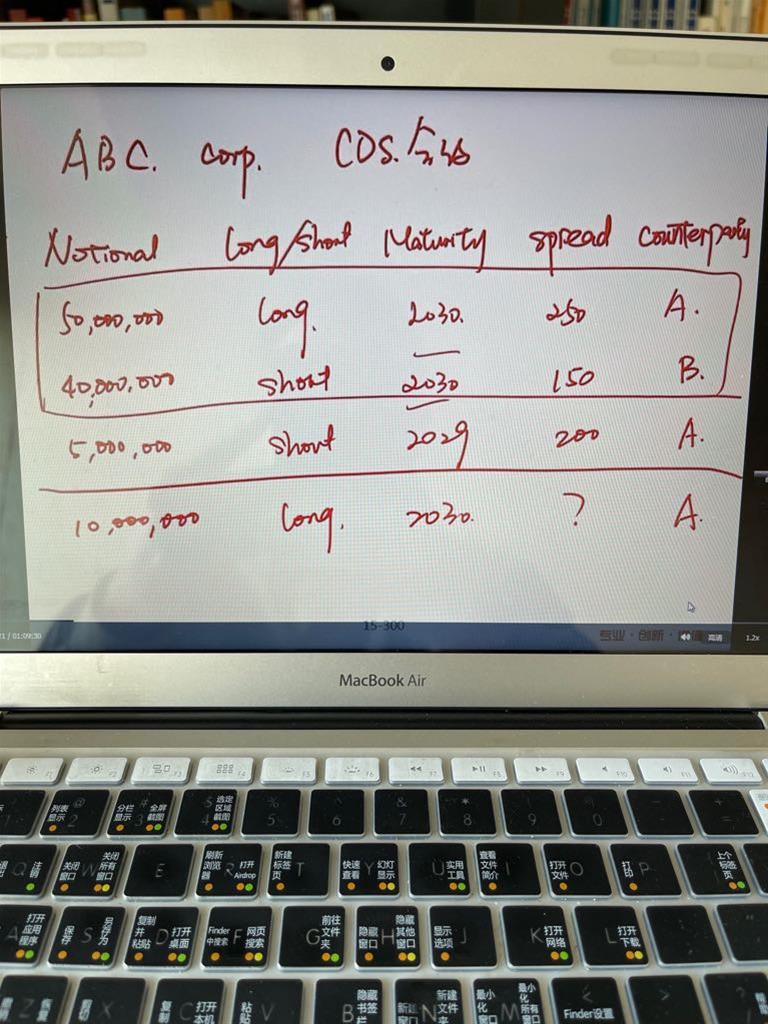 ABC. corp. CDS.
Notional Long/Short Maturity spread Counterparty
50,000,000 Long. 2030. 250 A.
40,000,000 short 2030 150 B.
5,000,000 short 2029 200 A.
10,000,000 Long. 2030. ? A.
15-300
/ 01:09:30 专业·创新· 高清 1.2x
MacBook Air
F1 F2 F3 F4 F5 F6 F7 F8 F9 F10 F11 F12
列表显示 2 分栏显示 3 全屏截图 4 选定区域截图 % 5 6 & 7 * 8 9 0
Q 注销 关闭窗口 W 关闭所有窗口 E 刷新浏览器 R 打开Airdrop 新建标签页 T 快速查看 Y 幻灯显示 U 实用工具 查看文件简介 I 打开文件 O 打印 P 上个标签页
A 打开应用程序 保存 S 另存为 复制并粘贴 D 打开桌面 Finder中搜索 F 网页搜索 G 前往文件夹 隐藏窗口 H 隐藏其他窗口 显示选项 J K 打开网络 L 打开下载
Z 恢复 X 复制 C 打开本机 粘贴 V B 隐藏书签栏 N 新建文件夹 最小化窗口 M 最小化所有窗口 Finder设置